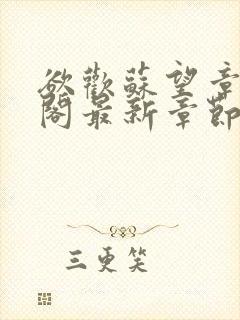 欲歡蘇望章
閣最新章節
三更笑